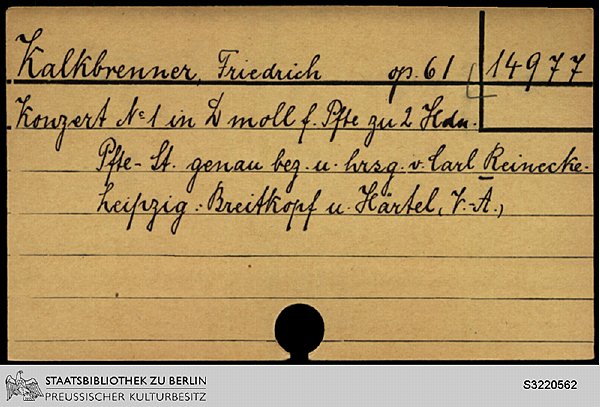 Kalkbrenner, Friedrich op. 61 14977
Konzert No 1 in D moll f. Pfte zu 2 Hdn.
Pfte-St. genau bez. u. hrsg. v. Carl Reinecke.
Leipzig: Breitkopf u. Härtel, (V.-A.)
STAATSBIBLIOTHEK ZU BERLIN
PREUSSISCHER KULTURBESITZ
S3220562